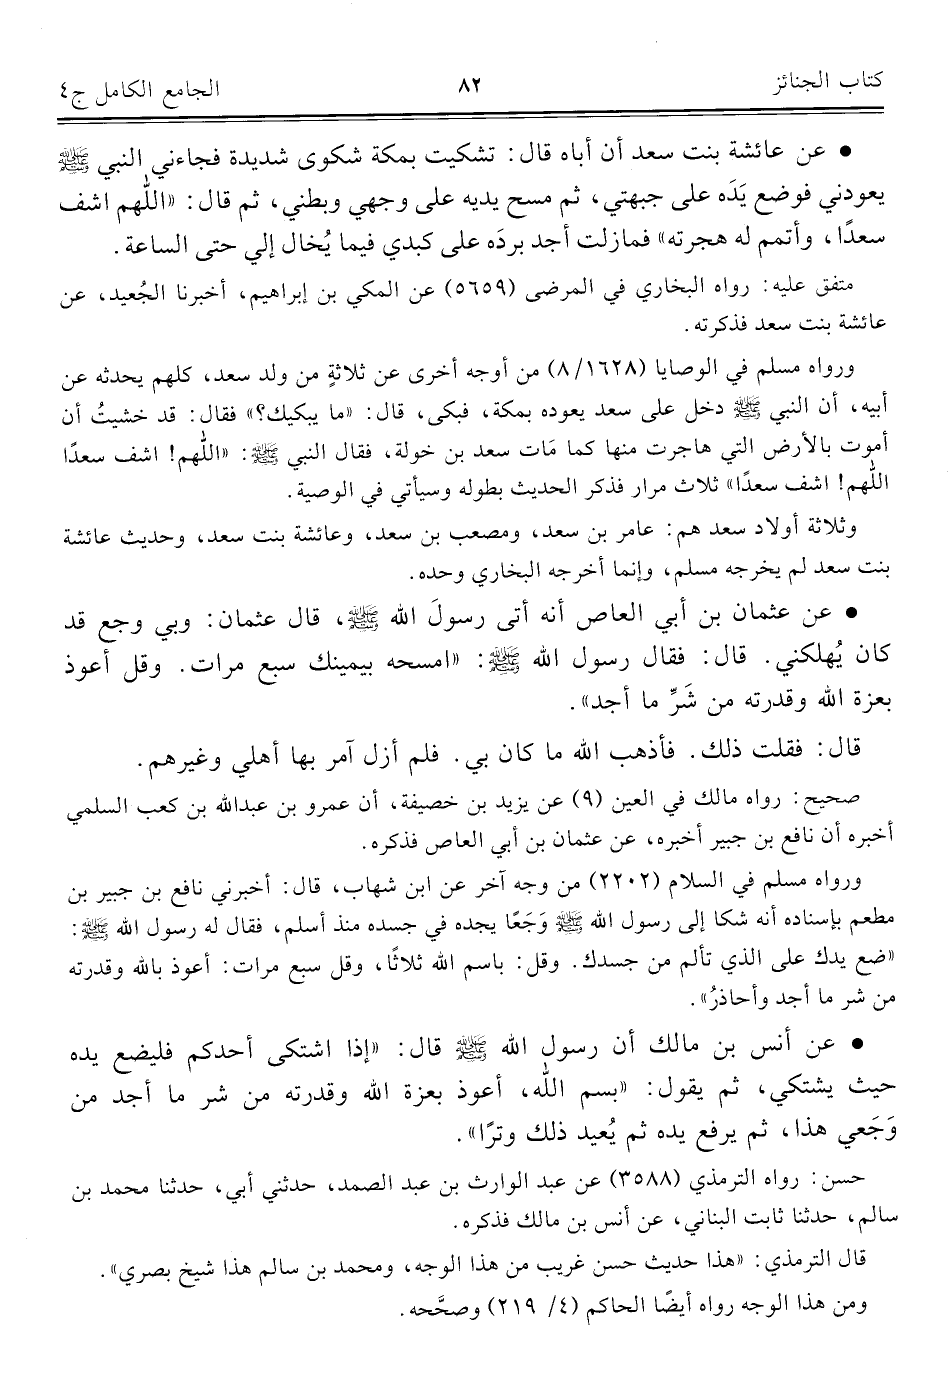 كتاب الجنائز ٨٢ الجامع الكامل ج٤
• عن عائشة بنت سعد أن أباه قال: تشكيت بمكة شكوى شديدة فجاءني النبي ﷺ
يعودني فوضع يَدَه على جبهتي، ثم مسح يديه على وجهي وبطني، ثم قال: «اللّٰهم اشف
سعدًا، وأتمم له هجرته» فمازلت أجد بردَه على كبدي فيما يُخال إلي حتى الساعة.
متفق عليه: رواه البخاري في المرضى (٥٦٥٩) عن المكي بن إبراهيم، أخبرنا الجُعيد، عن
عائشة بنت سعد فذكرته.
ورواه مسلم في الوصايا (٨/١٦٢٨) من أوجه أخرى عن ثلاثةٍ من ولد سعد، كلهم يحدثه عن
أبيه، أن النبي ﷺ دخل على سعد يعوده بمكة، فبكى، قال: «ما يبكيك؟» فقال: قد خشيتُ أن
أموت بالأرض التي هاجرت منها كما مَات سعد بن خولة، فقال النبي ﷺ: «اللّٰهم! اشف سعدًا
اللّٰهم! اشف سعدًا» ثلاث مرار فذكر الحديث بطوله وسيأتي في الوصية.
وثلاثة أولاد سعد هم: عامر بن سعد، ومصعب بن سعد، وعائشة بنت سعد، وحديث عائشة
بنت سعد لم يخرجه مسلم، وإنما أخرجه البخاري وحده.
• عن عثمان بن أبي العاص أنه أتى رسولَ الله ﷺ، قال عثمان: وبي وجع قد
كان يُهلكني. قال: فقال رسول الله ﷺ: «امسحه بيمينك سبع مرات. وقل أعوذ
بعزة الله وقدرته من شَرِّ ما أجد».
قال: فقلت ذلك. فأذهب الله ما كان بي. فلم أزل آمر بها أهلي وغيرهم.
صحيح: رواه مالك في العين (٩) عن يزيد بن خصيفة، أن عمرو بن عبدالله بن كعب السلمي
أخبره أن نافع بن جبير أخبره، عن عثمان بن أبي العاص فذكره.
ورواه مسلم في السلام (٢٢٠٢) من وجه آخر عن ابن شهاب، قال: أخبرني نافع بن جبير بن
مطعم بإسناده أنه شكا إلى رسول الله ﷺ وَجَعًا يجده في جسده منذ أسلم، فقال له رسول الله ﷺ:
«ضع يدك على الذي تألم من جسدك. وقل: باسم الله ثلاثًا، وقل سبع مرات: أعوذ بالله وقدرته
من شر ما أجد وأحاذرُ».
• عن أنس بن مالك أن رسول الله ﷺ قال: «إذا اشتكى أحدكم فليضع يده
حيث يشتكي، ثم يقول: «بسم اللّٰه، أعوذ بعزة الله وقدرته من شر ما أجد من
وَجَعي هذا، ثم يرفع يده ثم يُعيد ذلك وترًا».
حسن: رواه الترمذي (٣٥٨٨) عن عبد الوارث بن عبد الصمد، حدثني أبي، حدثنا محمد بن
سالم، حدثنا ثابت البناني، عن أنس بن مالك فذكره.
قال الترمذي: «هذا حديث حسن غريب من هذا الوجه، ومحمد بن سالم هذا شيخ بصري».
ومن هذا الوجه رواه أيضًا الحاكم (٤/ ٢١٩) وصحَّحه.